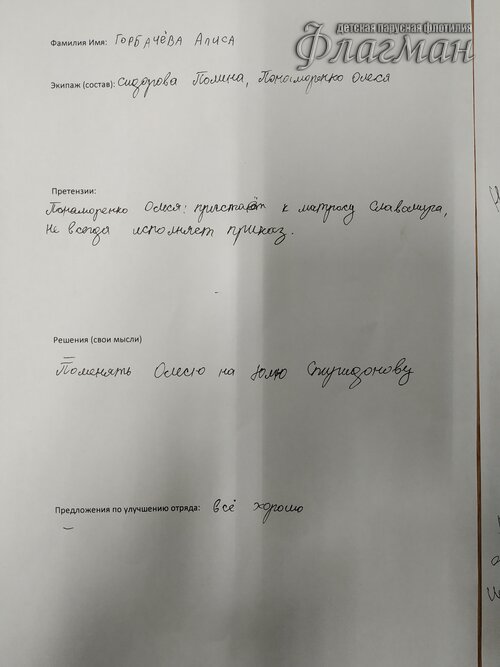 детская парусная флотилия
Флагман
Фамилия Имя: ГОРБАЧЁВА АЛИСА
Экипаж (состав): Сидорова Полина, Понаморенко Олеся
Претензии:
Понаморенко Олеся: пристаёт к матросу Славомира,
Не всегда исполняет приказ.
Решения (свои мысли)
Поменять Олесю на Юлю Спиридонову
Предложения по улучшению отряда: всё хорошо